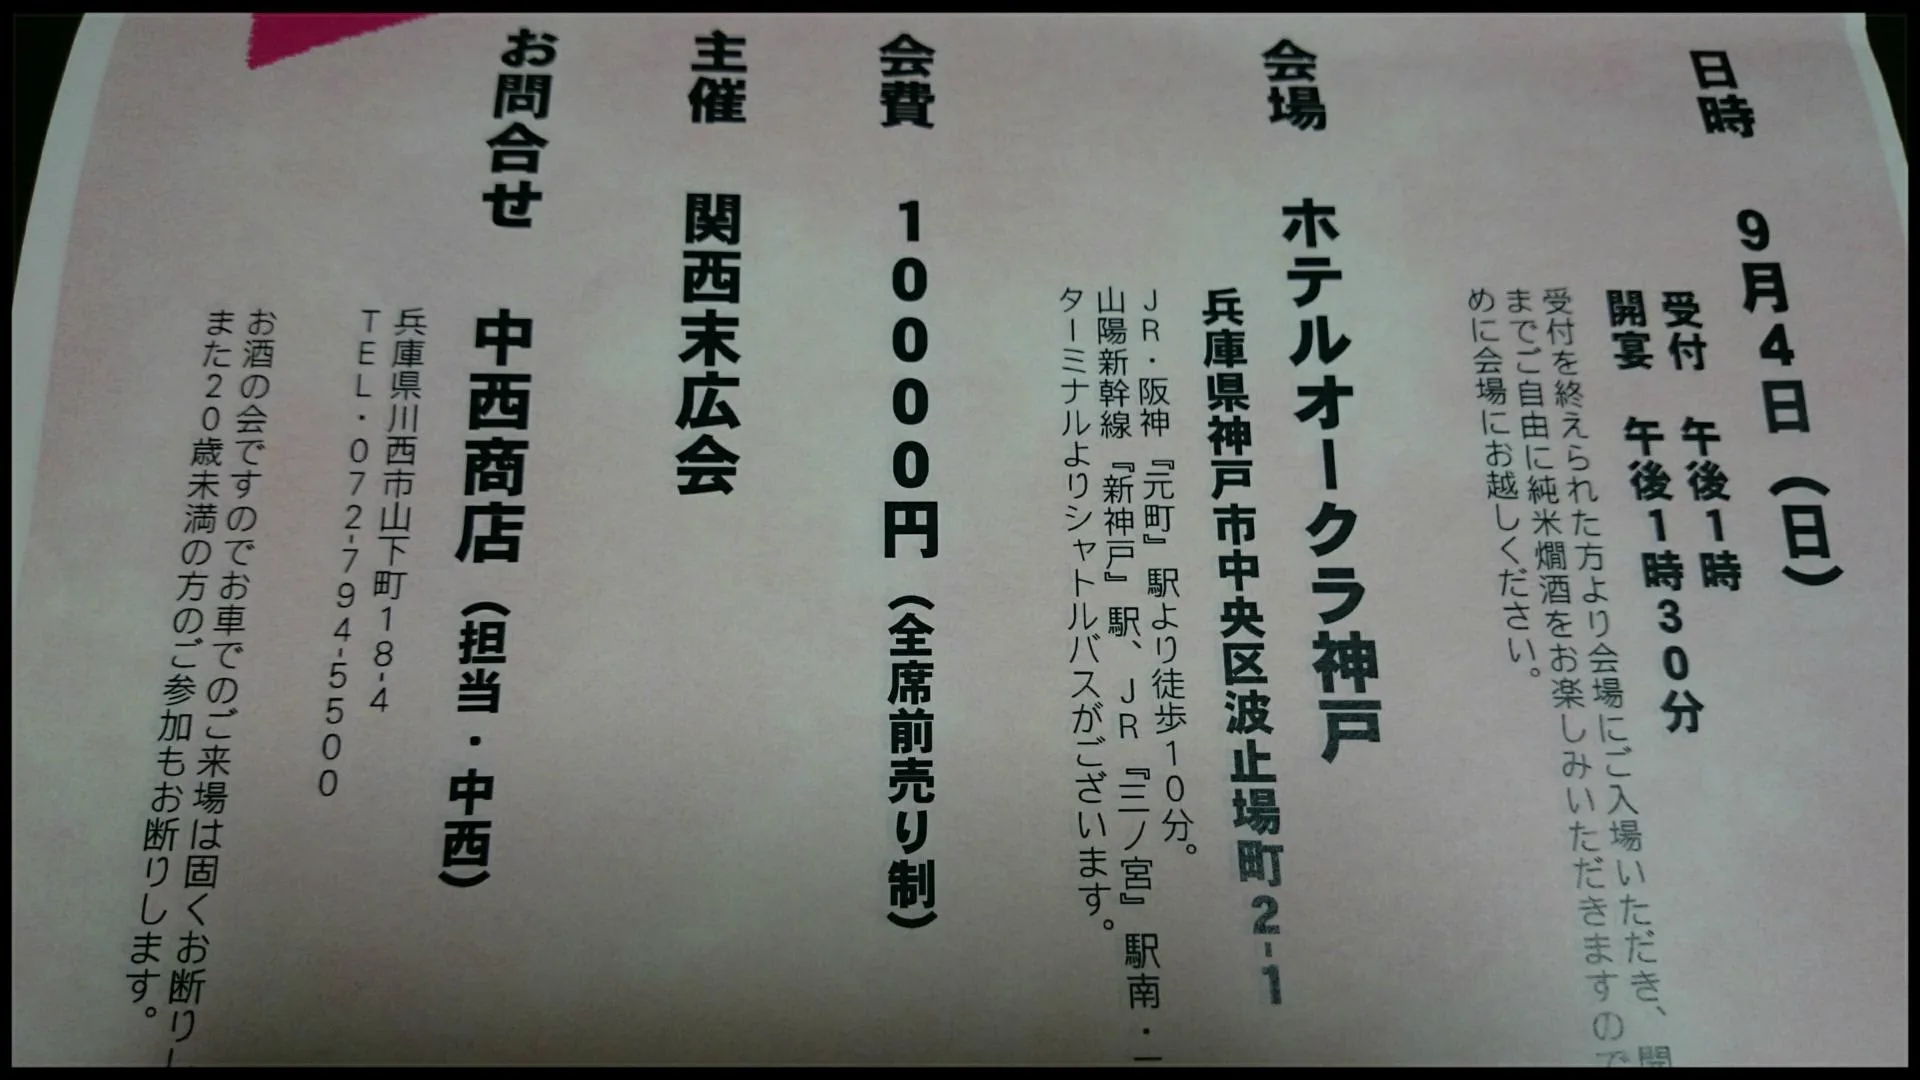 日時 9月4日(日)
受付 午後1時
開宴 午後1時30分
受付を終えられた方より会場にご入場いただき、開
までご自由に純米燗酒をお楽しみいただきますので
めに会場にお越しください。
会場 ホテルオークラ神戸
兵庫県神戸市中央区波止場町2-1
JR・阪神『元町』駅より徒歩10分。
山陽新幹線『新神戸』駅、JR『三ノ宮』駅南・
ターミナルよりシャトルバスがございます。
会費 10000円(全席前売り制)
主催 関西末広会
お問合せ 中西商店(担当・中西)
兵庫県川西市山下町18-4
TEL・072-794-5500
お酒の会ですのでお車でのご来場は固くお断りし
また20歳未満の方のご参加もお断りします。